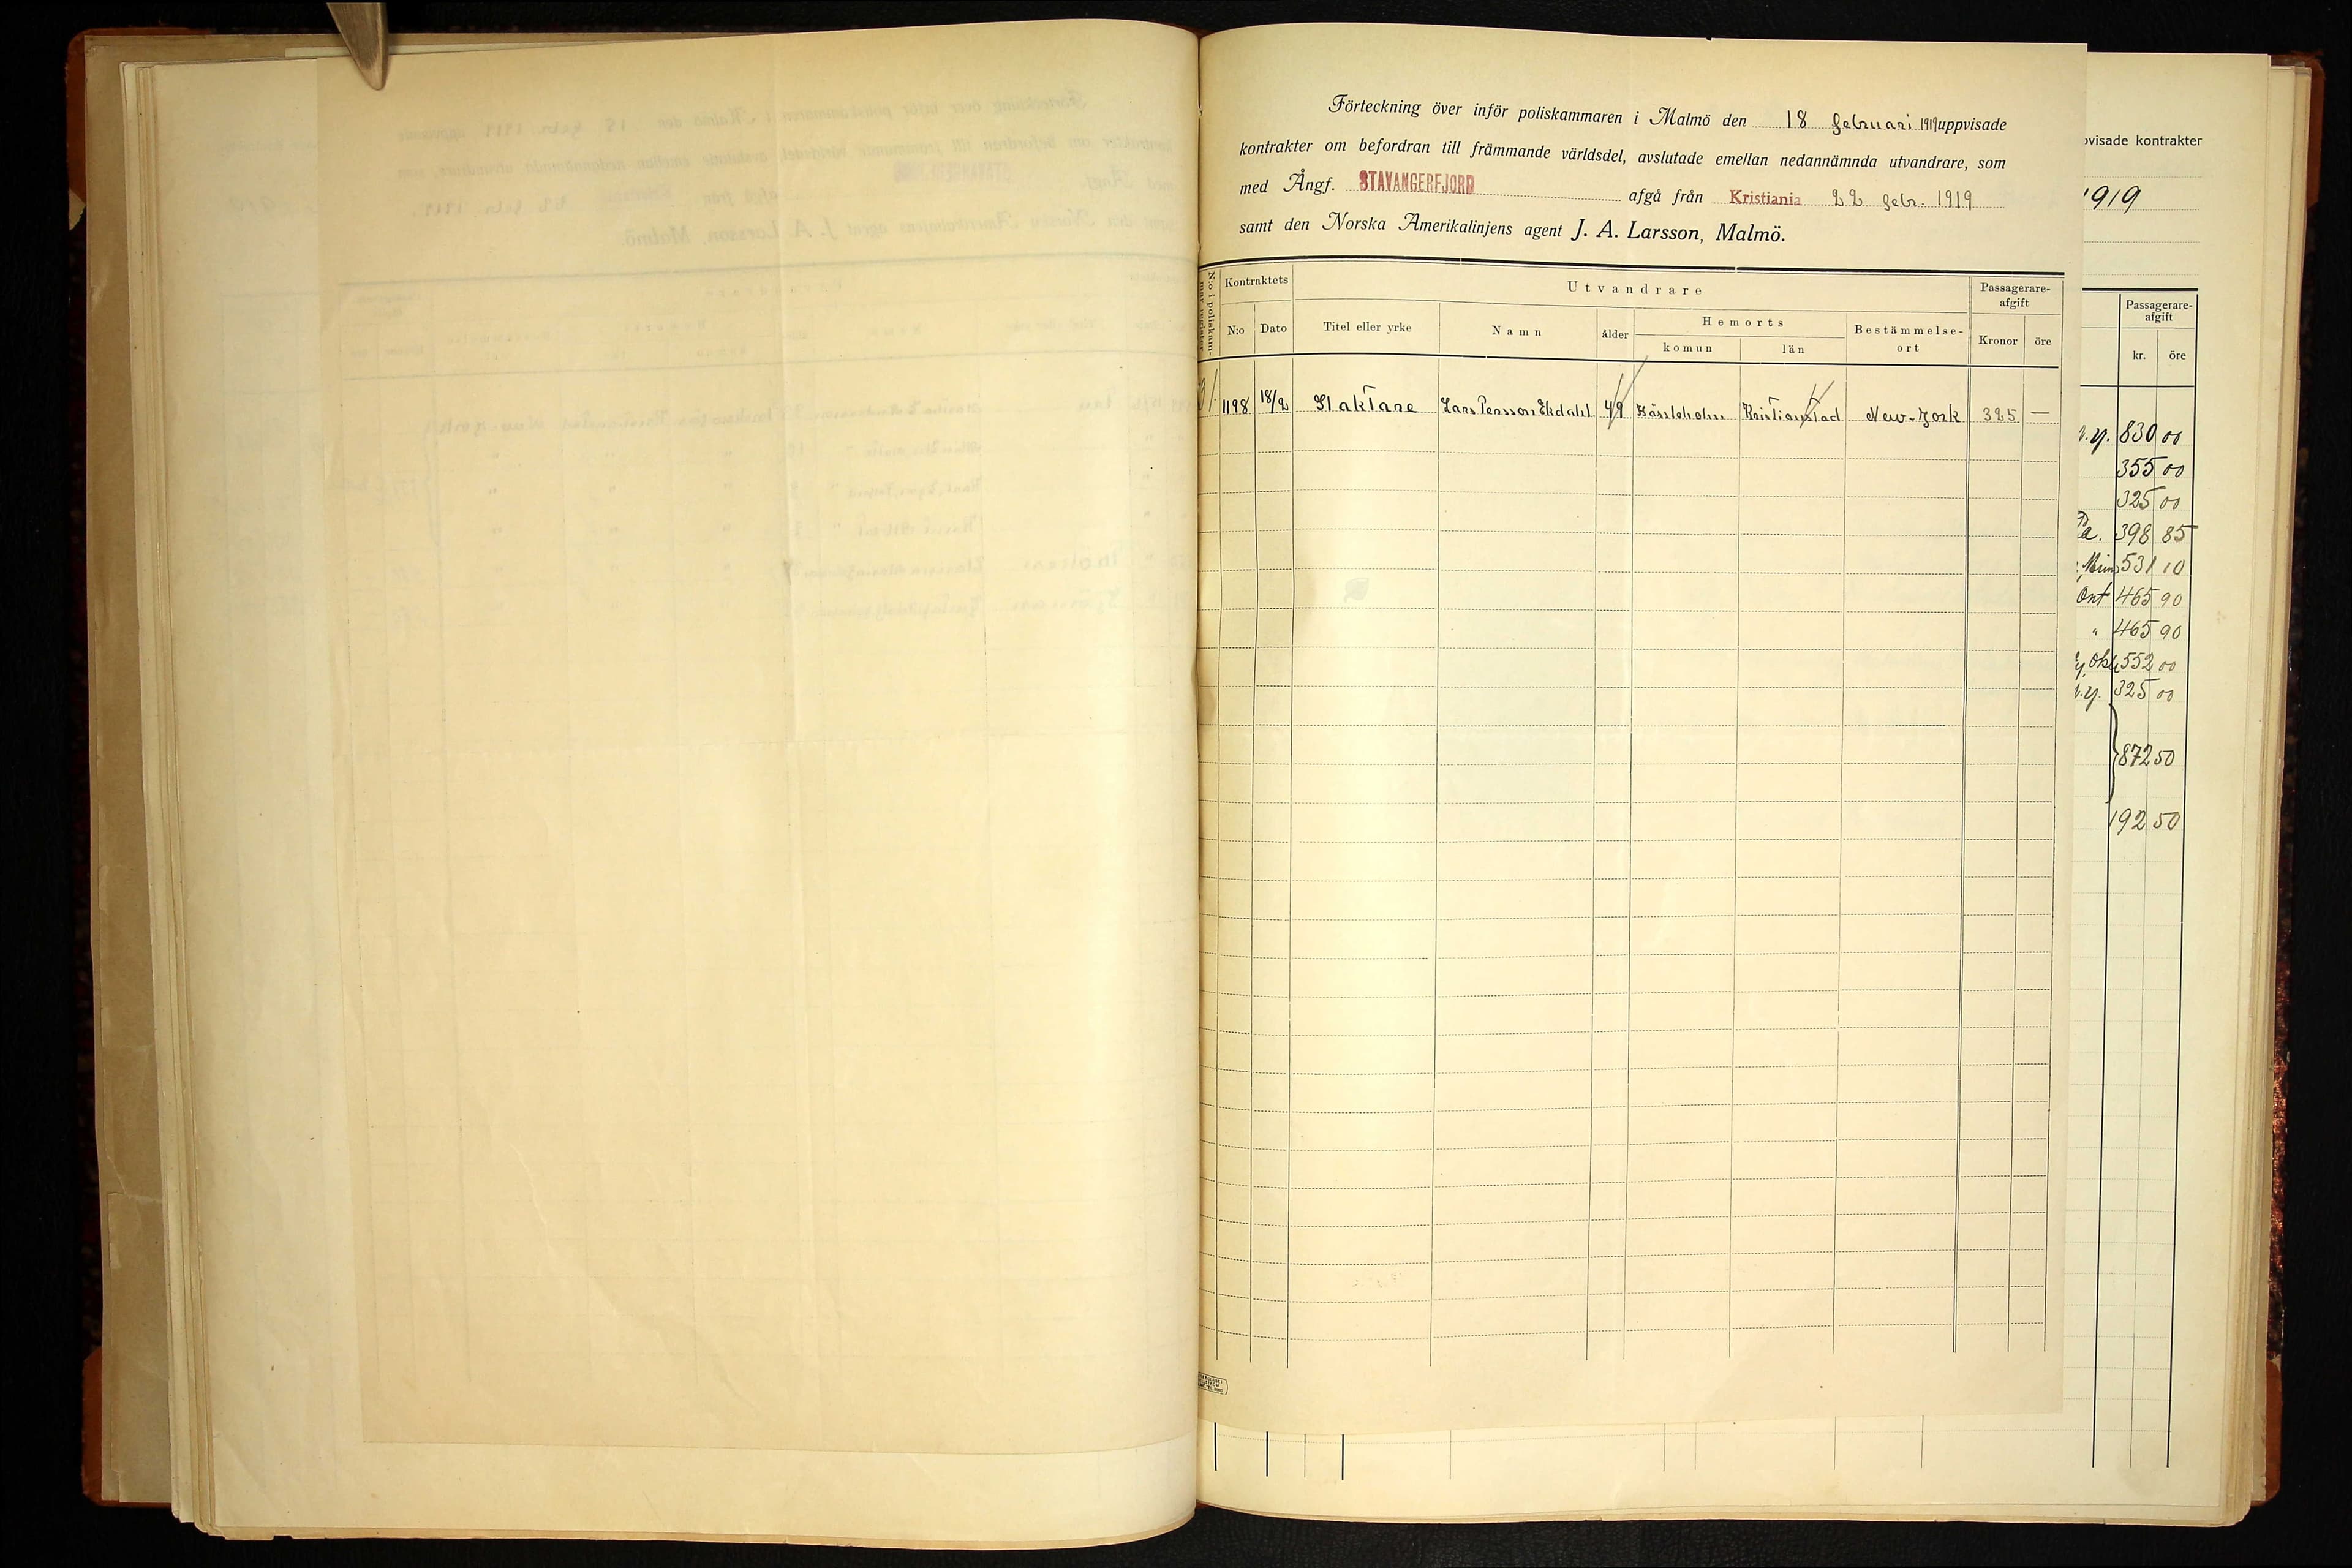 Förteckning över inför poliskammaren i Malmö den 18 februari 1919 uppvisade
kontrakter om befordran till främmande världsdel, avslutade emellan nedannämnda utvandrare, som
med Ångf. STAVANGERFJORD afgå från Kristiania 22 febr. 1919
samt den Norska Amerikalinjens agent J. A. Larsson, Malmö.
N:o i poliskam-
mar. register
Kontraktets
N:o
Dato
Utvandrare
Titel eller yrke
Namn
ålder
Hemorts
komun
län
Bestämmelse-
ort
Passagerare-
afgift
Kronor
öre
31 1198 18/2 Slaktare Lars Persson Ekdahl 49 Hässleholm Kristianstad New-York 325 —
pvisade kontrakter
1919
Passagerare-
afgift
kr. öre
n.y. 830 00
355 00
325 00
Pa. 398 85
Minn 531 10
Ont 465 90
" 465 90
Okl 552 00
n.y. 325 00
872 50
192 50